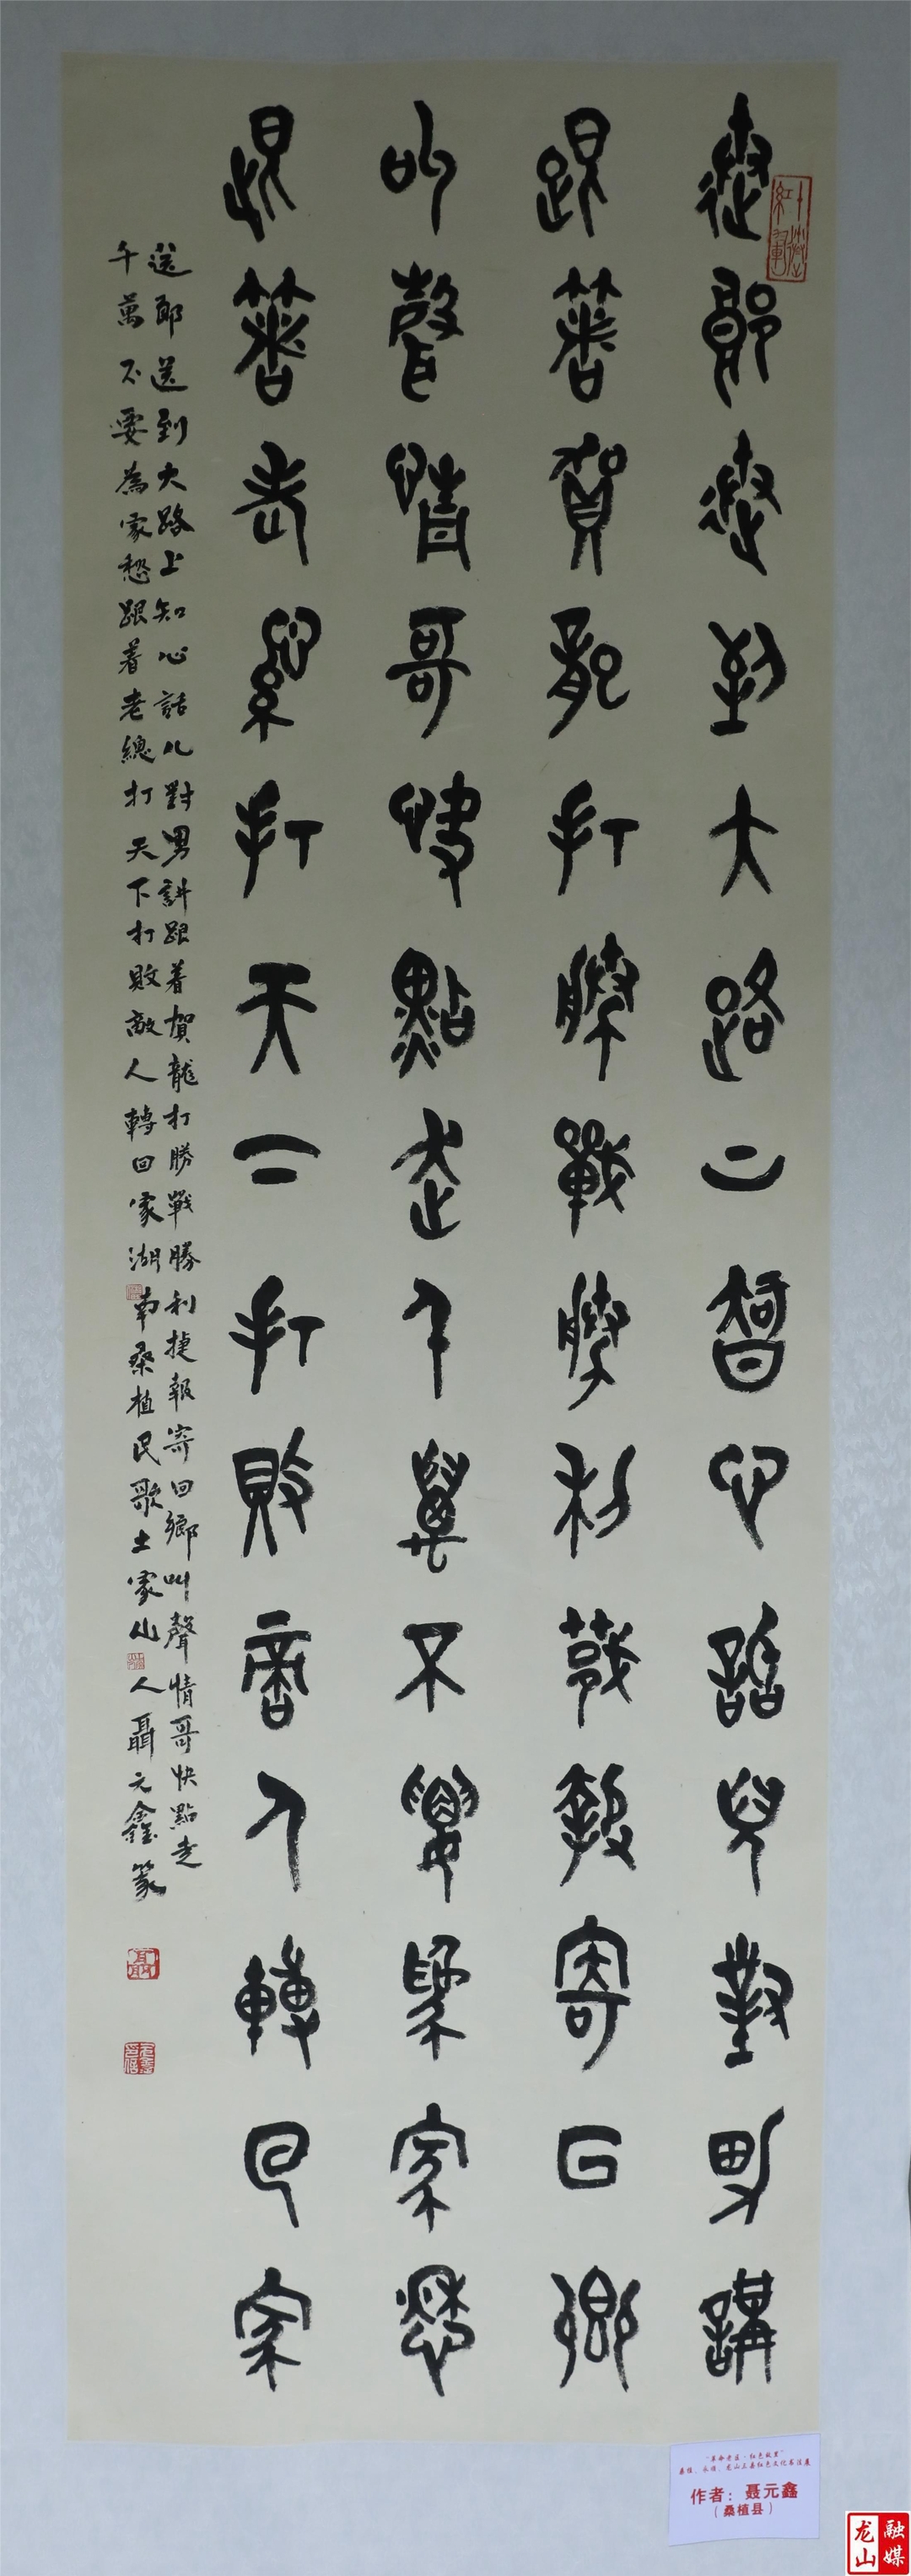 送郎送到大路上知心話兒對男講
跟著賀龍打勝戰勝利捷報寄回鄉
叫聲情哥快點走千萬不要為家愁
跟著老總打天下打敗敵人轉回家
送郎送到大路上知心話儿對男講跟着賀龍打勝戰勝利捷報寄回鄉叫聲情哥快點走
千萬不要為家愁跟着老總打天下打敗敵人轉回家湖南桑植民歌土家山人聶元鑫篆
“革命老区·红色故里”
桑植、永顺、龙山三县红色文化书法展
作者：聂元鑫
（桑植县）
龙山融媒